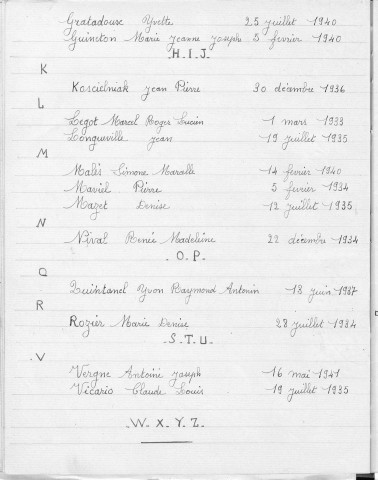 Gratadoux Yvette 25 juillet 1940
Guineton Marie Jeanne Joseph 5 fevrier 1940
H.I.J.
K
Koscielniak Jean Pierre 30 décembre 1936
L
Legot Marcel Roger Lucien 1 mars 1933
Longueville Jean 19 juillet 1935
M
Malès Simone Maralle 14 fevrier 1940
Maviel Pierre 5 fevrier 1934
Mazet Denise 12 juillet 1935
N
Nival Renée Madeleine 22 décembre 1934
O.P.
Q
Quintanel Yvon Raymond Antonin 18 juin 1937
R
Rozier Marie Denise 28 juillet 1934
S.T.U.
V
Vergne Antoine Joseph 16 mai 1941
Vicario Claude Louis 19 juillet 1935
W.X.Y.Z.